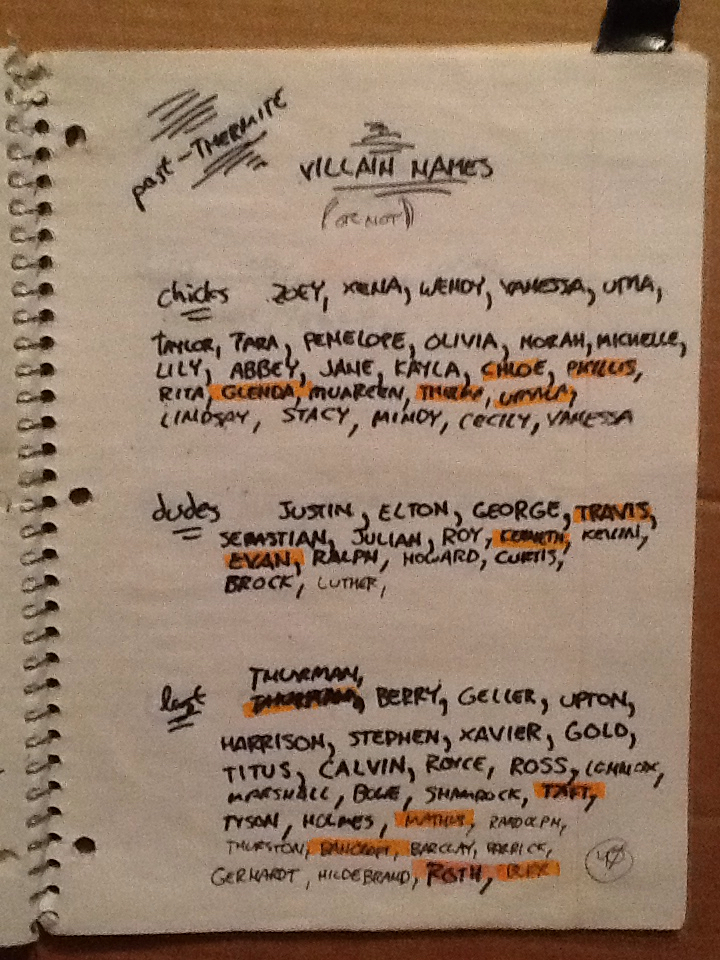 post-THERMITE
VILLAIN NAMES
(OR NOT)
chicks ZOEY, XENA, WENDY, VANESSA, UMA,
TAYLOR, TARA, PENELOPE, OLIVIA, NORAH, MICHELLE,
LILY, ABBEY, JANE, KAYLA, CHLOE, PHYLLIS,
RITA, GLENDA, MUAREEN,
LINDSAY, STACY, MINDY, CECILY, VANESSA
dudes JUSTIN, ELTON, GEORGE, TRAVIS,
SEBASTIAN, JULIAN, ROY, KELVIN,
EVAN, RALPH, HOWARD, CURTIS,
BROCK, LUTHER,
THURMAN,
last BERRY, GELLER, UPTON,
HARRISON, STEPHEN, XAVIER, GOLD,
TITUS, CALVIN, ROYCE, ROSS, LENNOX,
MARSHALL, SHAMROCK, TAFT,
TYSON, HOLMES, MATHIS, RANDOLPH,
THURSTON, BANCROFT, BARCLAY,
GERHARDT, HILDEBRAND, ROTH,